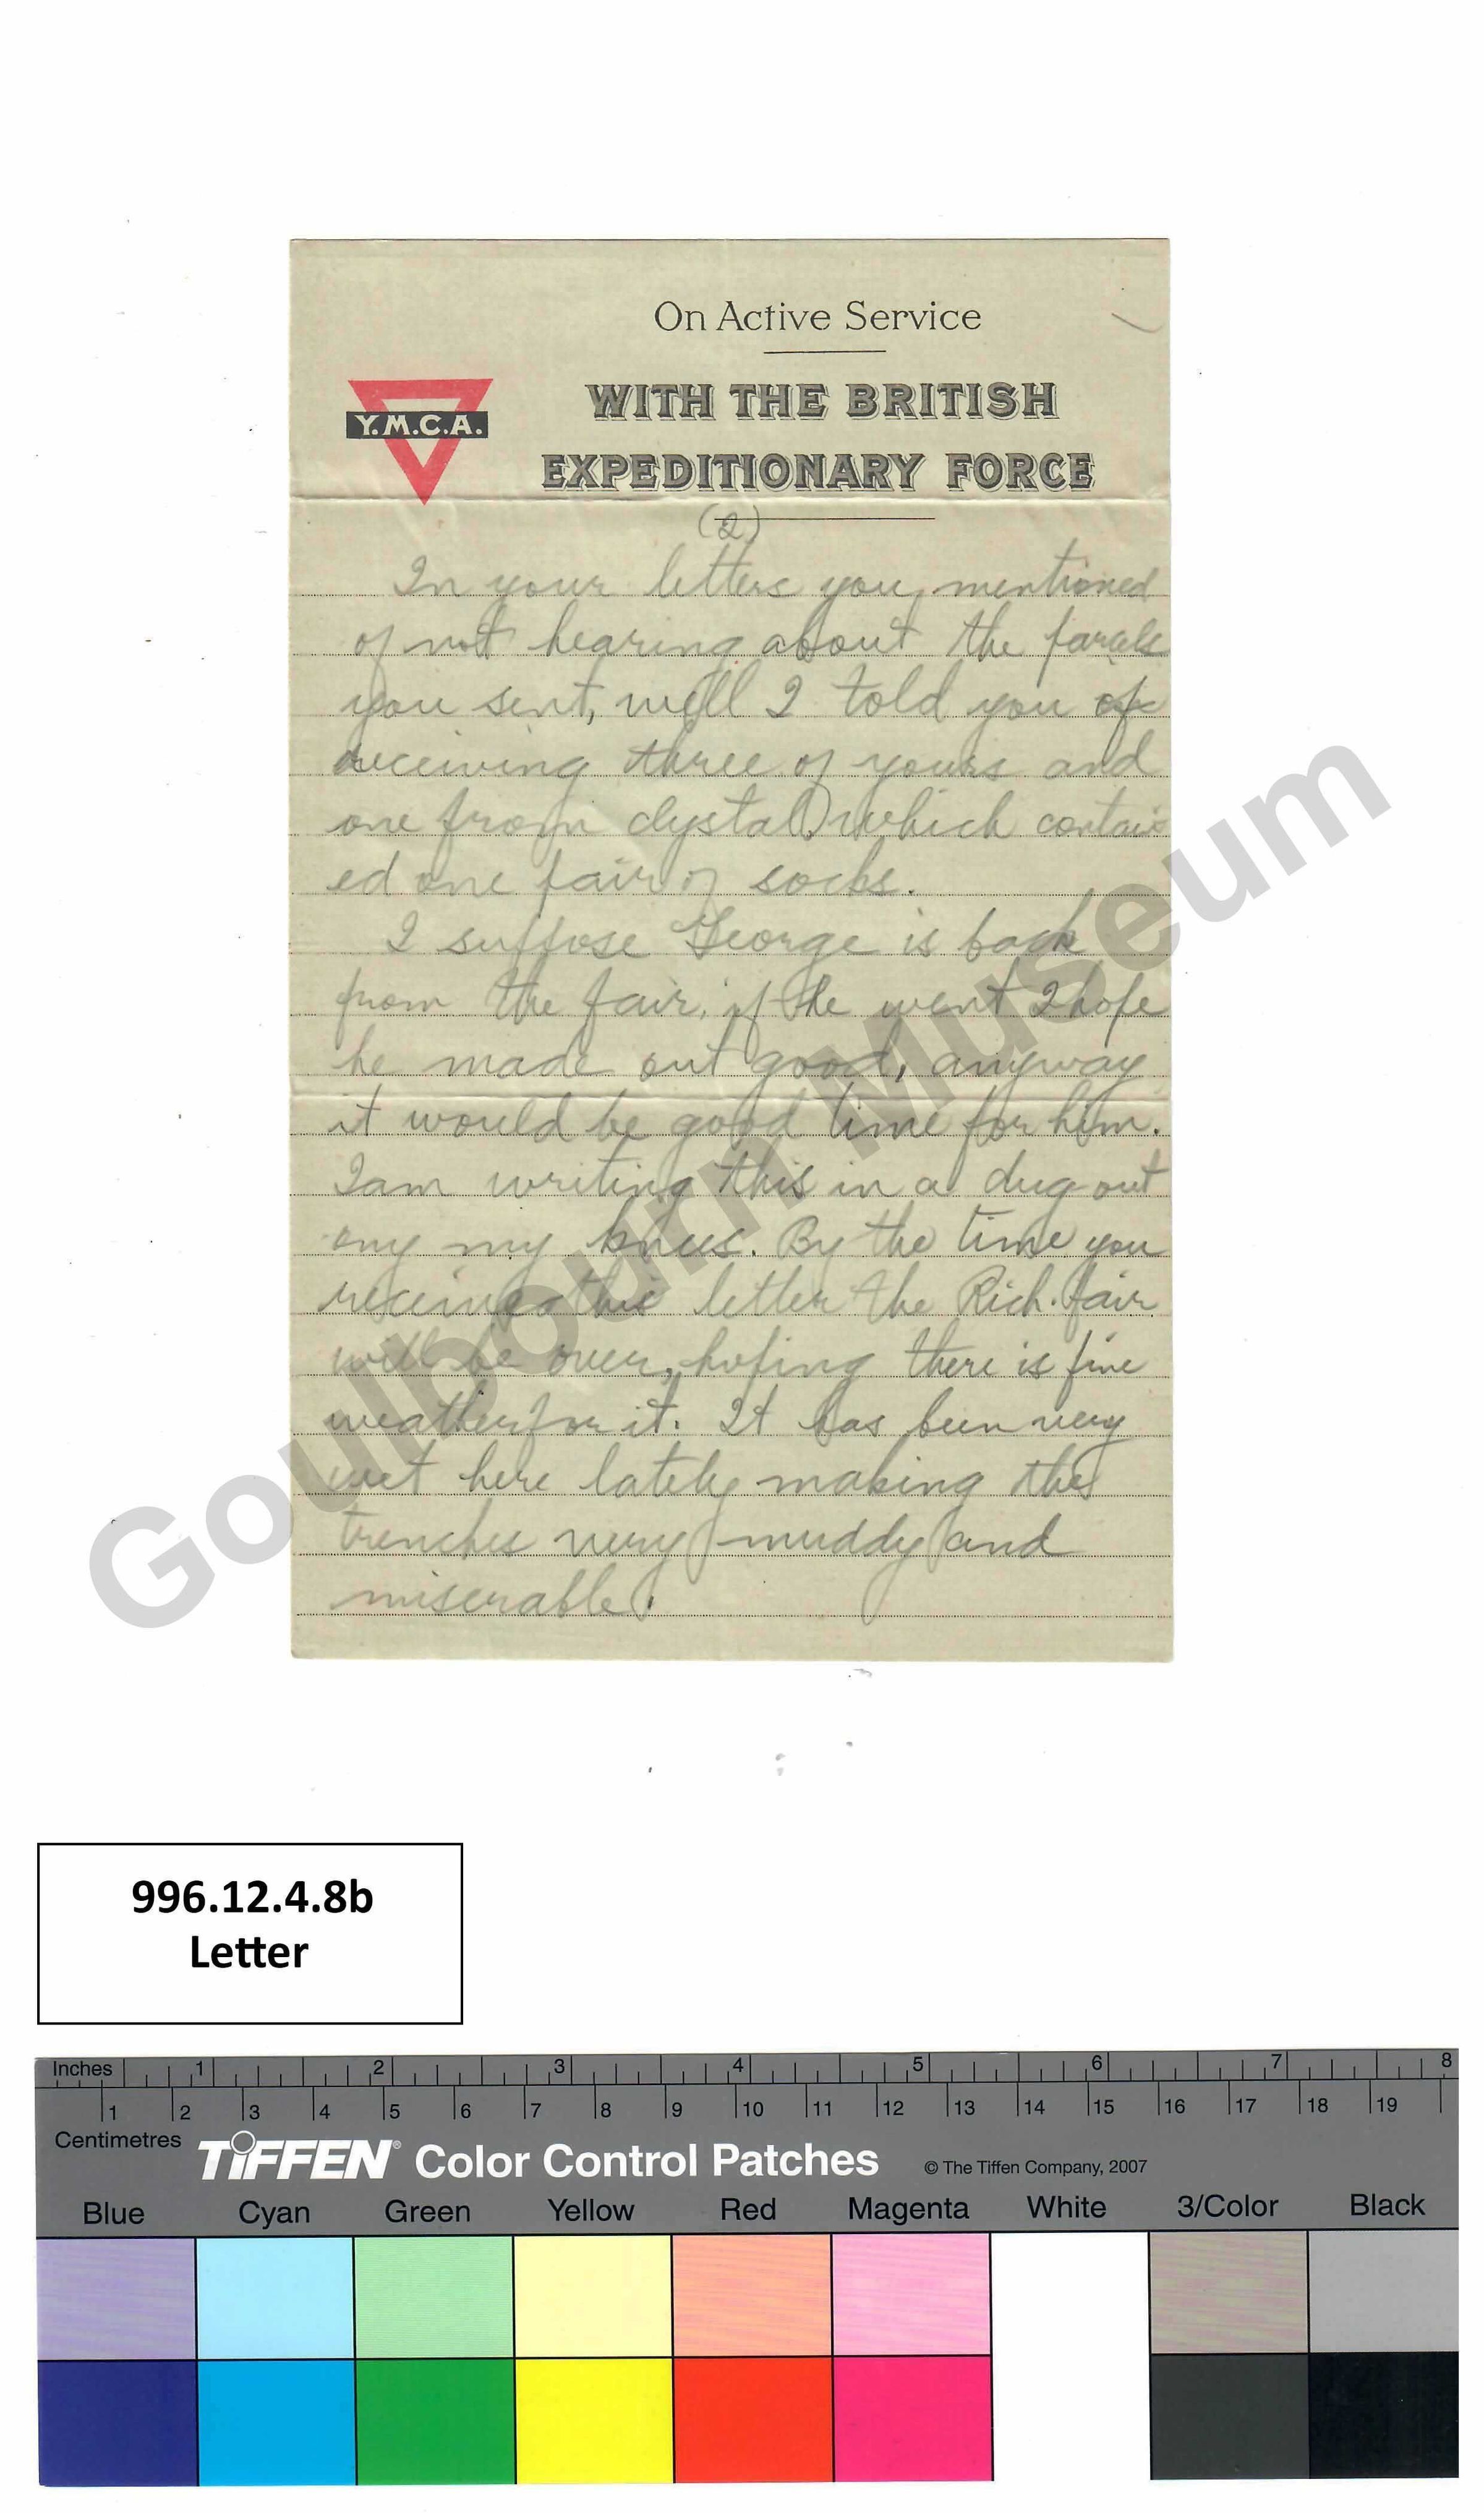 On Active Service
Y.M.C.A.
WITH THE BRITISH
EXPEDITIONARY FORCE
(2)
In your letters you mentioned
of not hearing about the
you sent, well I told you of
receiving three of yours and
one from Crystal which contain
ed one pair of socks.
I suppose George is back
from the fair, if he went I hope
he made out good, anyway
it would be good time for him.
I am writing this in a dug out
ony my knees. By the time you
receive this letter the Rich. fair
will be over, hoping there is fine
weather for it. It has been very
wet here lately making the
trenches very muddy and
miserable.
Goulbourn Museum
996.12.4.8b
Letter
Inches 1 2 3 4 5 6 7 8
1 2 3 4 5 6 7 8 9 10 11 12 13 14 15 16 17 18 19
Centimetres
TIFFEN® Color Control Patches © The Tiffen Company, 2007
Blue Cyan Green Yellow Red Magenta White 3/Color Black